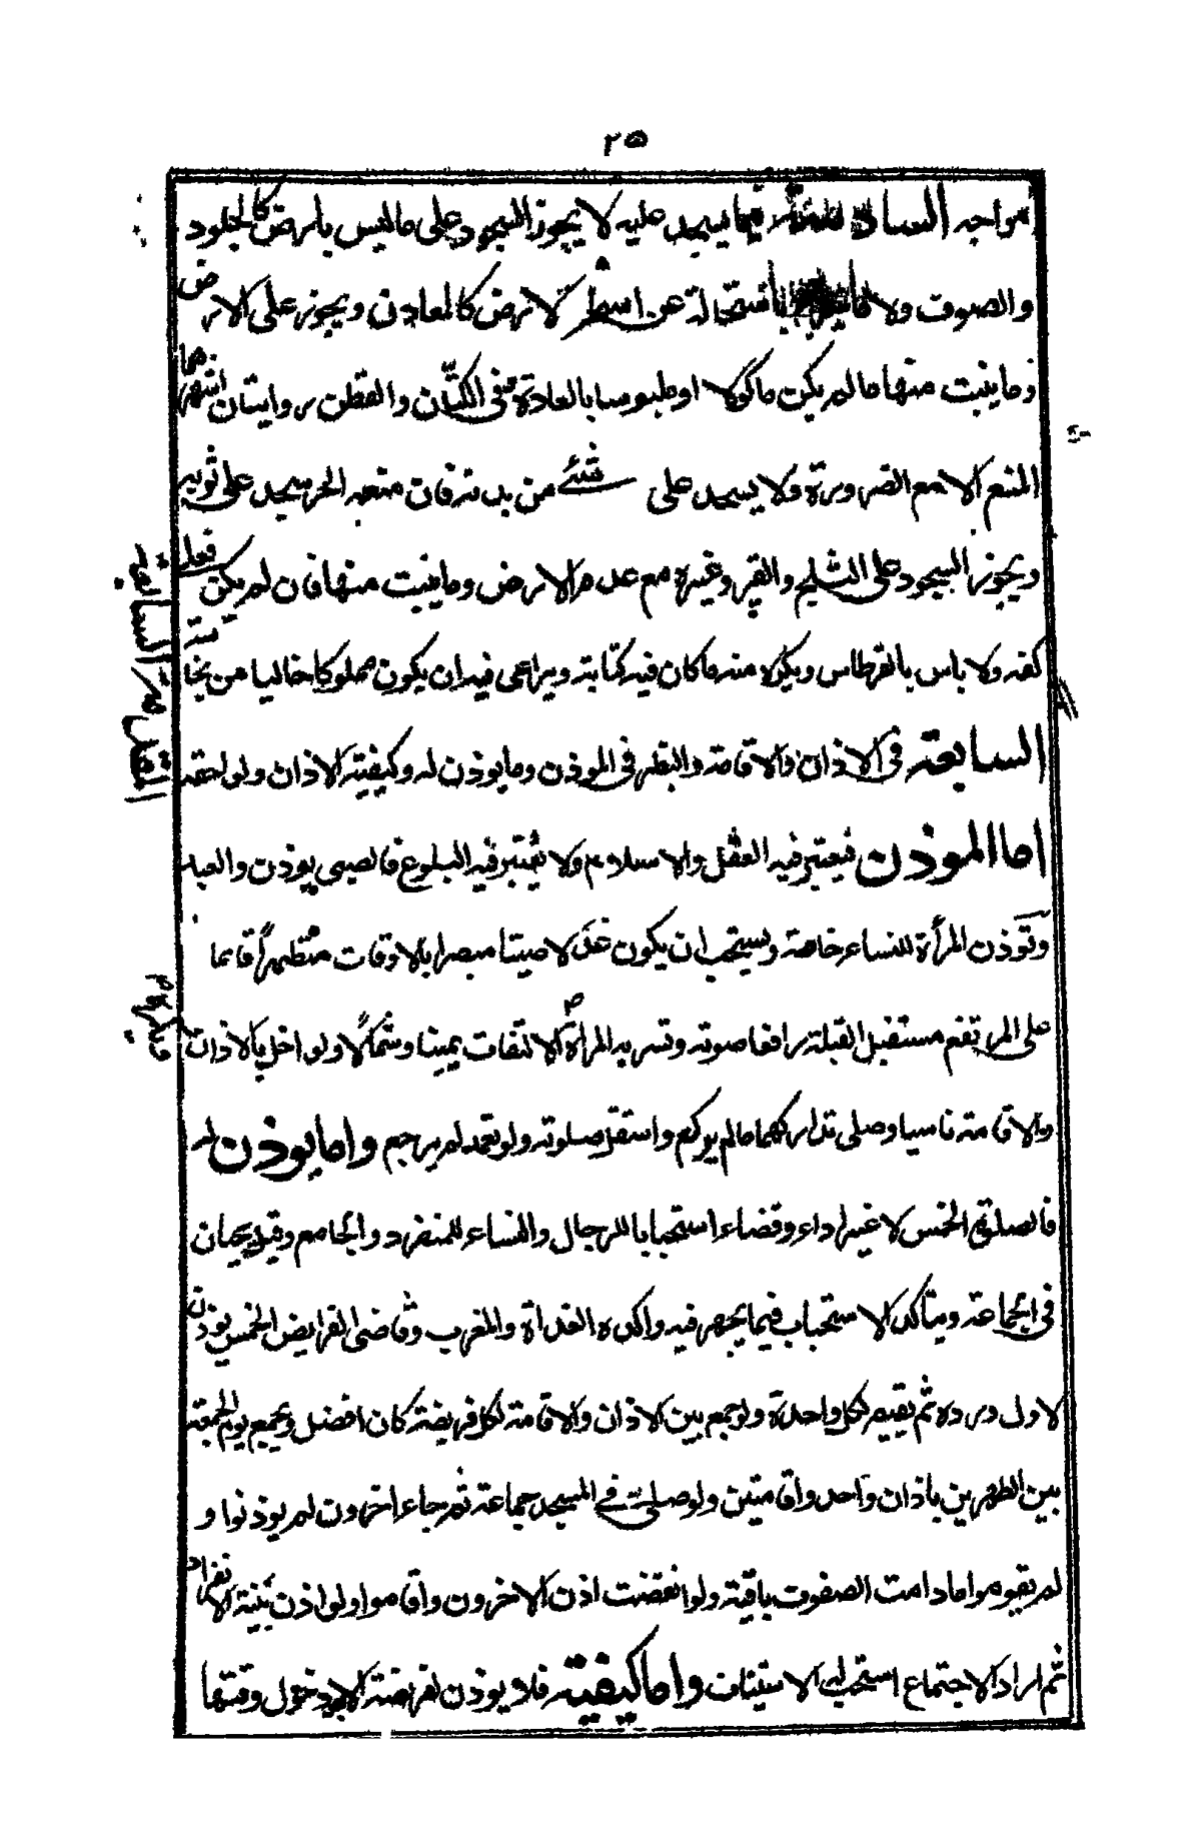 ٢٥
مواجهه السادسة فيما يسجد عليه لا يجوز السجود على ما ليس بارض كالجلود
والصوف ولا باستحالة عن اسم الارض كالمعادن ويجوز على الارض
وما ينبت منها ما لم يكن ماكولا او ملبوسا بالعادة وفى الكتان والقطن روايتان اشهرهما
المنع الا مع الضرورة ولا يسجد على شئ من بدنه فان منعه الحر سجد على ثوبه
ويجوز السجود على الثلج والقير وغيره مع عدم الارض وما ينبت منها فان لم يكن فعلى
كفه ولا باس بالقرطاس ويكره منه ما كان فيه كتابة ويراعى فيه ان يكون مملوكا خاليا من نجاسة
السابعة فى الاذان والاقامة والنظر فى الموذن وما يوذن له وكيفية الاذان ولواحقه
اما الموذن فيعتبر فيه العقل والاسلام ولا يعتبر فيه البلوغ فالصبى يوذن والعبد
وتوذن المرأة للنساء خاصة ويستحب ان يكون عدلا صيتا مبصرا بالاوقات متطهرا قائما
على المرتفع مستقبل القبلة رافعا صوته وتسر به المرأة ويكره الالتفات يمينا وشمالا ولو اخل بالاذان
والاقامة ناسيا وصلى تداركهما ما لم يركع واستقبل صلوته ولو تعمد لم يرجع واما يوذن له
فالصلوة الخمس لا غير اداء وقضاء استحبابا للرجال والنساء للمنفرد والجامع وقيل يجبان
فى الجماعة ويتاكد الاستحباب فيما يجهر فيه واكده الغداة والمغرب وقاضى الفرايض الخمس يوذن
لاول ورده ثم يقيم لكل واحدة ولو جمع بين الاذان والاقامة لكل فريضة كان افضل ويجمع يوم الجمعة
بين الظهرين باذان واحد واقامتين ولو صلى فى المسجد جماعة ثم جاء اخرون لم يوذنوا و
لم يقوموا ما دامت الصفوف باقية ولو انفضت اذن الاخرون واقاموا ولو اذن بنية الانفراد
ثم اراد الاجتماع استحب له الاستيناف واما كيفيته فلا يوذن لفريضة الا بعد دخول وقتها
المقدمة السابعة